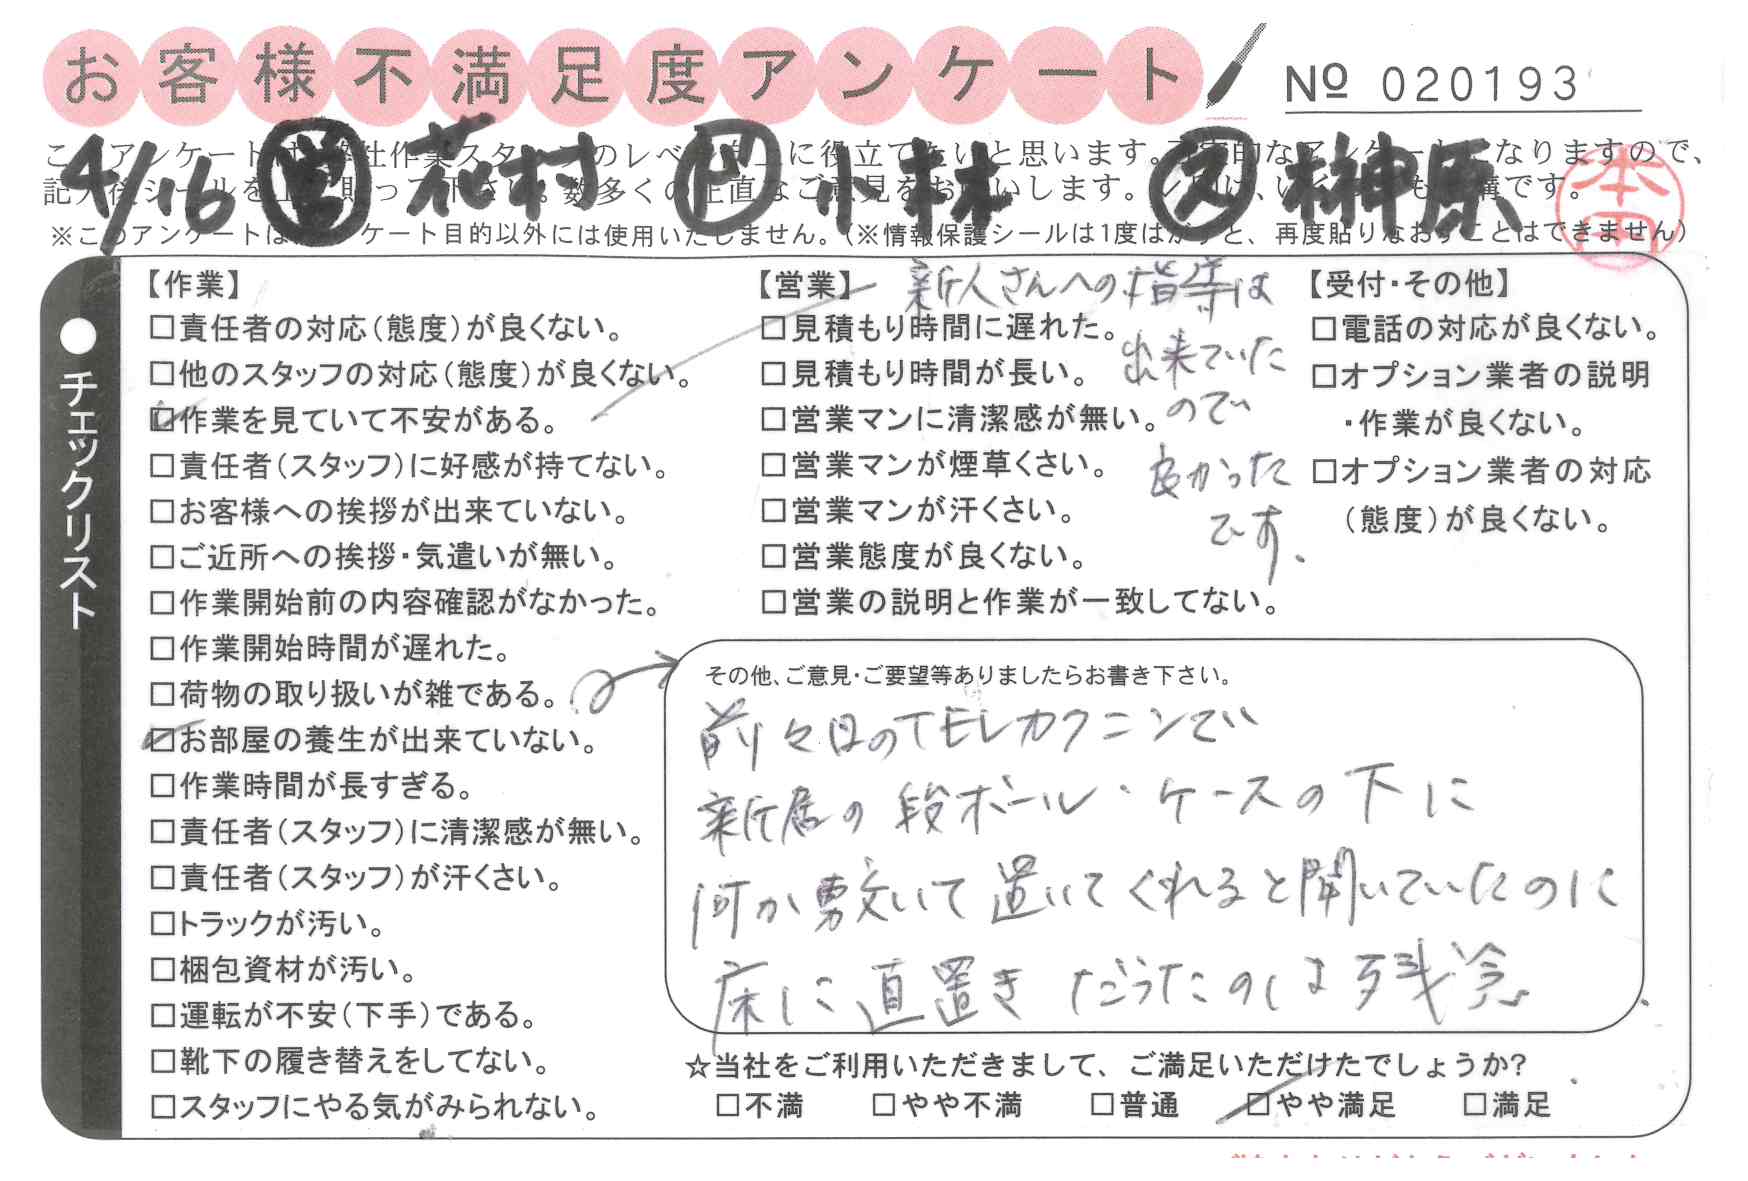 お客様不満足度アンケート
Nº 020193
4/16 営 花村 ド 小林 ス 榊原
本田
※このアンケートはアンケート目的以外には使用いたしません。(※情報保護シールは1度はがすと、再度貼りなおすことはできません)
●チェックリスト
【作業】
□責任者の対応(態度)が良くない。
□他のスタッフの対応(態度)が良くない。
☑作業を見ていて不安がある。
□責任者(スタッフ)に好感が持てない。
□お客様への挨拶が出来ていない。
□ご近所への挨拶・気遣いが無い。
□作業開始前の内容確認がなかった。
□作業開始時間が遅れた。
□荷物の取り扱いが雑である。
☑お部屋の養生が出来ていない。
□作業時間が長すぎる。
□責任者(スタッフ)に清潔感が無い。
□責任者(スタッフ)が汗くさい。
□トラックが汚い。
□梱包資材が汚い。
□運転が不安(下手)である。
□靴下の履き替えをしてない。
□スタッフにやる気がみられない。
【営業】
□見積もり時間に遅れた。
□見積もり時間が長い。
□営業マンに清潔感が無い。
□営業マンが煙草くさい。
□営業マンが汗くさい。
□営業態度が良くない。
□営業の説明と作業が一致してない。
新人さんへの指導は
出来ていた
ので
良かった
です.
【受付・その他】
□電話の対応が良くない。
□オプション業者の説明
・作業が良くない。
□オプション業者の対応
(態度)が良くない。
その他、ご意見・ご要望等ありましたらお書き下さい。
前々日のTELカクニンで
新居の段ボール・ケースの下に
何か敷いて置いてくれると聞いていたのに
床に直置きだったのは残念.
☆当社をご利用いただきまして、ご満足いただけたでしょうか?
□不満 □やや不満 □普通 ☑やや満足 □満足